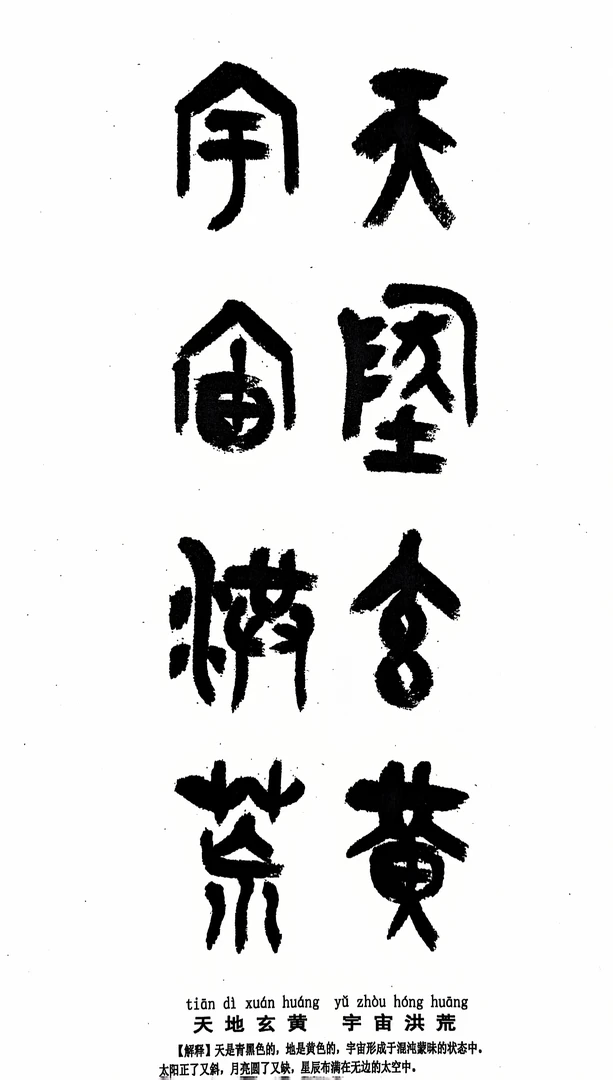 天地玄黄
宇宙洪荒
tiān dì xuán huáng yǔ zhòu hóng huāng
天地玄黄 宇宙洪荒
【解释】天是青黑色的，地是黄色的，宇宙形成于混沌蒙昧的状态中。
太阳正了又斜，月亮圆了又缺，星辰布满在无边的太空中。